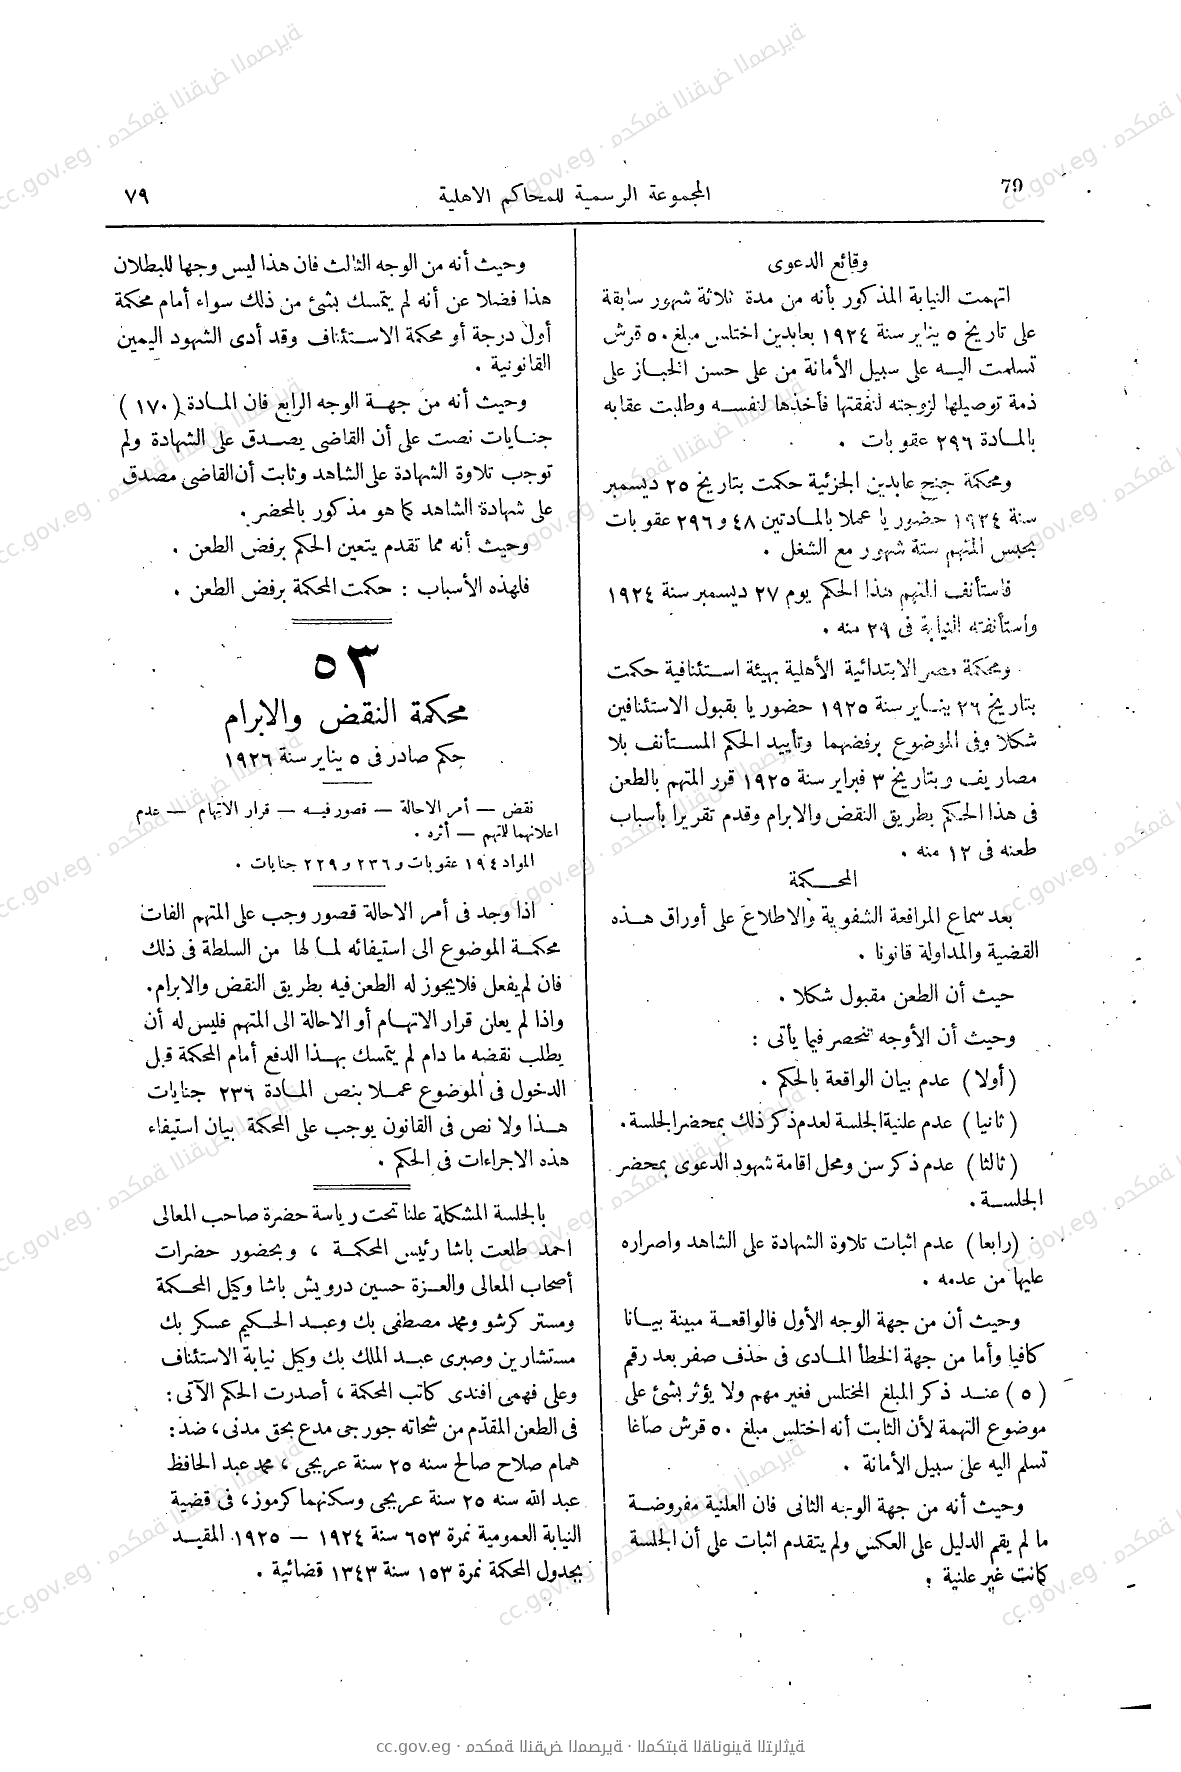 79
المجموعة الرسمية للمحاكم الاهلية
٧٩
وقائع الدعوى
اتهمت النيابة المذكور بأنه من مدة ثلاثة شهور سابقة
على تاريخ ٥ يناير سنة ١٩٢٤ بعابدين اختلس مبلغ ٥٠ قرش
تسلمت اليـه على سبيل الأمانة من على حسن الخبـاز على
ذمة توصيلها لزوجته لنفقتها فأخذها لنفسـه وطلبت عقابه
بالمـادة ٢٩٦ عقوبات .
ومحكمة جنح عابدين الجزئية حكمت بتاريخ ٢٥ ديسمبر
سنة ١٩٢٤ حضوريا عملا بالمـادتين ٤٨ و ٢٩٦ عقوبات
بحبس المتهم ستة شهور مع الشغل .
فاستأنف المتهم هذا الحكم يوم ٢٧ ديسمبر سنة ١٩٢٤
واستأنفته النيابة فى ٢٩ منه .
ومحكمة مصر الابتدائية الأهلية بهيئة اسـتئنافية حكمت
بتاريخ ٢٦ ينـاير سنة ١٩٢٥ حضوريا بقبول الاستئنافين
شكلا وفى الموضوع برفضهما وتأييد الحكم المسـتأنف بلا
مصاريف وبتاريخ ٣ فبراير سنة ١٩٢٥ قرر المتهم بالطعن
فى هذا الحكم بطريق النقض والابرام وقدم تقريرا بأسباب
طعنه فى ١٢ منه .
المحـكمة
بعد سماع المرافعة الشفوية والاطلاع على أوراق هـذه
القضية والمداولة قانونا .
حيث أن الطعن مقبول شكلا .
وحيث أن الأوجه تنحصر فيما يأتى :
(أولا) عدم بيان الواقعة بالحكم .
(ثانيا) عدم علنية الجلسة لعدم ذكر ذلك بمحضر الجلسة .
(ثالثا) عدم ذكر سن ومحل اقامة شهود الدعوى بمحضر
الجلسـة .
(رابعا) عدم اثبات تلاوة الشهادة على الشاهد واصراره
عليها من عدمه .
وحيث أن من جهة الوجه الأول فالواقعـة مبينة بيـانا
كافيا وأما من جهة الخطأ المـادى فى حذف صفر بعد رقم
(٥) عنـد ذكر المبلغ المختلس فغير مهم ولا يؤثر بشئ على
موضوع التهمة لأن الثابت أنه اختلس مبلغ ٥٠ قرش صاغا
تسلم اليه على سبيل الأمانة .
وحيث أنه من جهة الوجه الثانى فان العلنية مفروضـة
ما لم يقم الدليل على العكس ولم يتقدم اثبات على أن الجلسة
كانت غير علنية .
وحيث أنه من الوجه الثالث فان هذا ليس وجها للبطلان
هذا فضلا عن أنه لم يتمسك بشئ من ذلك سواء أمام محكمة
أول درجة أو محكمة الاسـتئناف وقد أدى الشهود اليمين
القانونية .
وحيث أنه من جهـة الوجه الرابع فان المـادة (١٧٠)
جنـايات نصت على أن القاضى يصـدق على الشهادة ولم
توجب تلاوة الشهادة على الشاهد وثابت أن القاضى مصدق
على شهادة الشاهد كما هو مذكور بالمحضر .
وحيث أنه مما تقدم يتعين الحكم برفض الطعن .
فلهذه الأسباب : حكمت المحكمة برفض الطعن .
٥٣
محكمة النقض والابرام
حكم صادر فى ٥ يناير سنة ١٩٢٦
نقض — أمر الاحالة — قصور فيـه — قرار الاتهام — عدم
اعلانهما للمتهم — أثره .
المواد ١٩٤ عقوبات و ٢٣٦ و ٢٢٩ جنايات .
اذا وجد فى أمر الاحالة قصور وجب على المتهم الفات
محكمـة الموضوع الى استيفائه لمـا لها من السلطة فى ذلك
فان لم يفعل فلا يجوز له الطعن فيه بطريق النقض والابرام .
واذا لم يعلن قرار الاتهـام أو الاحالة الى المتهم فليس له أن
يطلب نقضه ما دام لم يتمسك بهـذا الدفع أمام المحكمة قبل
الدخول فى الموضوع عمـلا بنص المـادة ٢٣٦ جنايات
هـذا ولا نص فى القانون يوجب على المحكمة بيان استيفاء
هذه الاجراءات فى الحكم .
بالجلسة المشكلة علنا تحت رياسة حضرة صاحب المعالى
احمد طلعت باشا رئيس المحكمـة ، وبحضور حضرات
أصحاب المعالى والعـزة حسين درويش باشا وكيل المحـكمة
ومستر كرشو ومحمد مصطفى بك وعبـد الحـكيم عسكر بك
مستشارين وصبرى عبـد الملك بك وكيل نيابة الاستئناف
وعلى فهمى افندى كاتب المحكمة ، أصدرت الحكم الآتى :
فى الطعن المقدّم من شحاته جورجى مدع بحق مدنى ، ضد :
همام صلاح صالح سنه ٢٥ سنة عربجى ، محمد عبد الحافظ
عبد الله سنه ٢٥ سنة عربجى وسكنهما كرموز ، فى قضية
النيابة العمومية نمرة ٦٥٣ سنة ١٩٢٤ — ١٩٢٥ المقيـد
بجدول المحكمة نمرة ١٥٣ سنة ١٣٤٣ قضائية .
cc.gov.eg · محكمة النقض المصرية · المكتبة القانونية التراثية